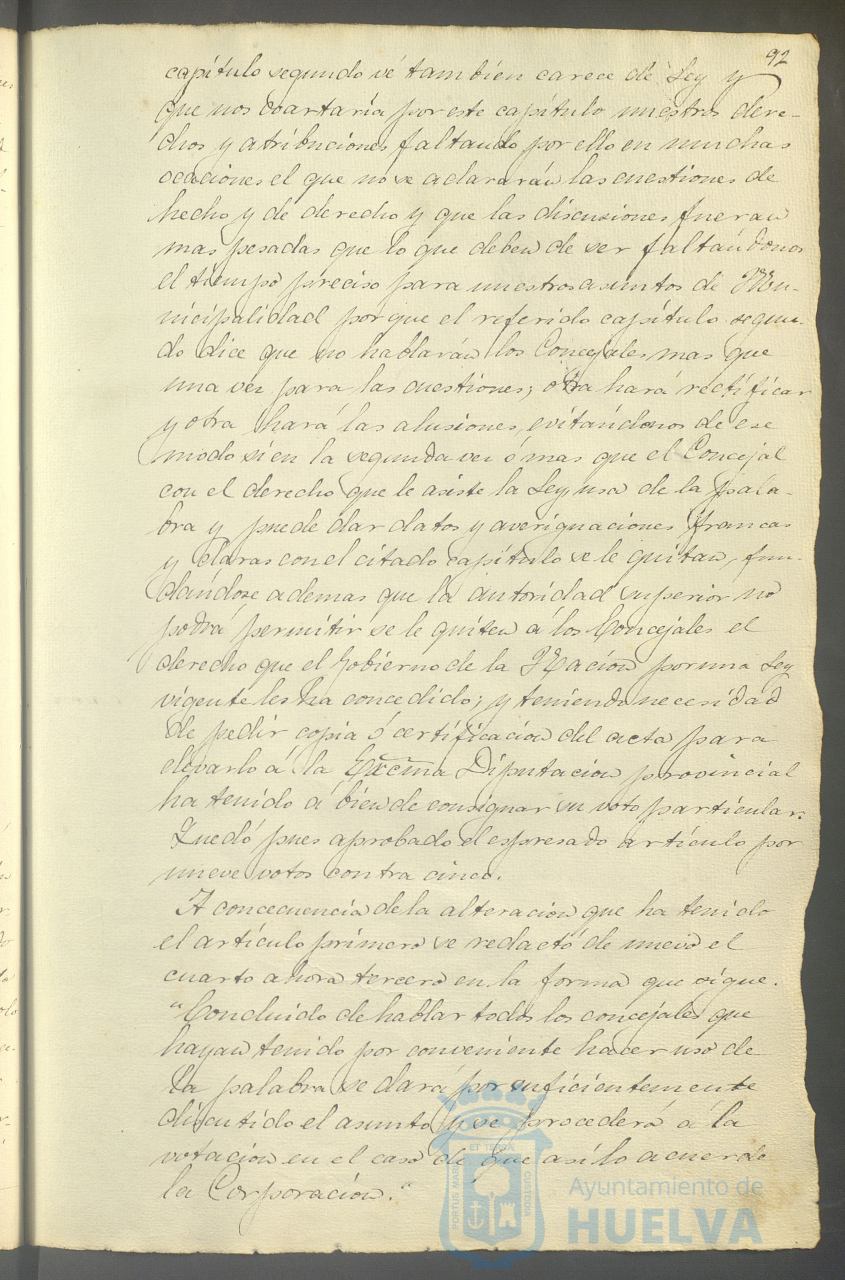 92
capítulo segundo se tambien carece de Ley y
que nos coartaría por este capítulo nuestros dere-
chos y atribuciones faltando por ello en muchas
ocaciones el que no se aclararán las cuestiones de
hecho y de derecho y que las discusiones fueran
mas pesadas que lo que deben de ser faltandonos
el tiempo preciso para nuestros asuntos de Mu-
nicipalidad porque el referido capítulo segun-
do dice que no hablarán los Concejales mas que
una vez para las cuestiones; otra hará rectificar
y otra hará las alusiones, evitándonos de ese
modo si en la segunda vez ó mas que el Concejal
con el derecho que le asiste la Ley usa de la pala-
bra y puede dar datos y averiguaciones francas
y claras con el citado capítulo se le quitan, fun-
dándose ademas que la autoridad superior no
podrá permitir se le quiten á los Concejales el
derecho que el Gobierno de la Nacion por una Ley
vigente les ha concedido; y teniendo necesidad
de pedir copia ó certificacion del acta para
elevarlo á la Excma Diputacion provincial
ha tenido á bien de consignar su voto particular.
Quedó pues aprobado el espresado artículo por
nueve votos contra cinco.
A concecuencia de la alteracion que ha tenido
el artículo primero se redactó de nuevo el
cuarto ahora tercero en la forma que sigue.
"Concluido de hablar todos los concejales que
hayan tenido por conveniente hacer uso de
la palabra se dará por suficientemente
discutido el asunto y se procederá á la
votacion en el caso de que así lo acuerde
la Corporacion."
PORTUS MARIS ET TERRAE CUSTODIA
Ayuntamiento de
HUELVA